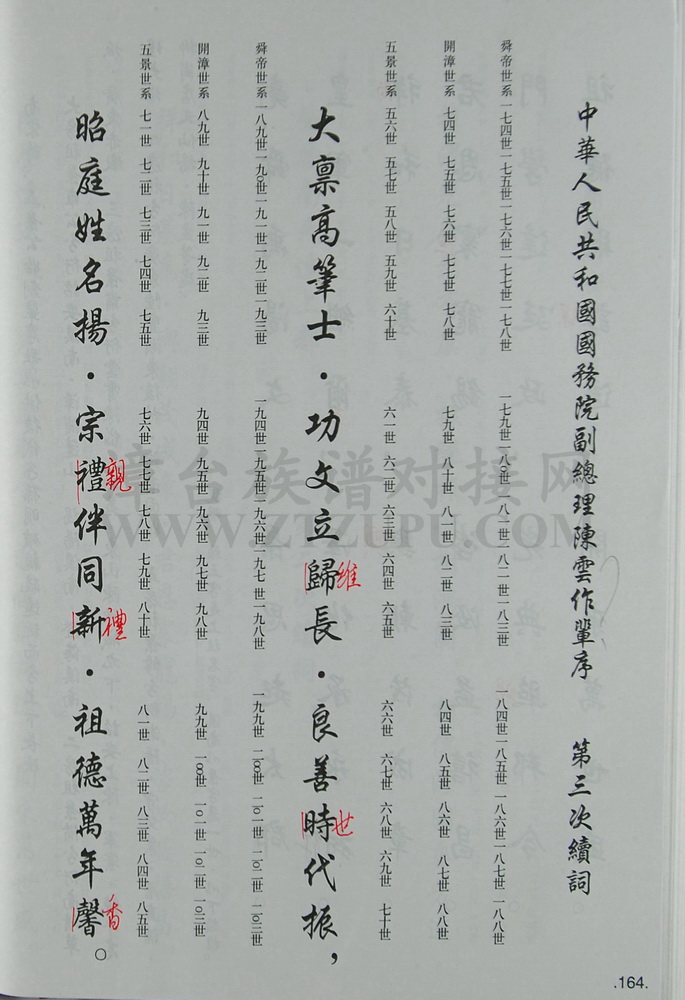 中華人民共和國國務院副總理陳雲作輩序 第三次續詞
舜帝世系 一七四世 一七五世 一七六世 一七七世 一七八世 一七九世 一八〇世 一八一世 一八二世 一八三世 一八四世 一八五世 一八六世 一八七世 一八八世
開漳世系 七四世 七五世 七六世 七七世 七八世 七九世 八十世 八一世 八二世 八三世 八四世 八五世 八六世 八七世 八八世
五景世系 五六世 五七世 五八世 五九世 六十世 六一世 六二世 六三世 六四世 六五世 六六世 六七世 六八世 六九世 七十世
大禀高筆士·功文立歸長·良善時代振，
維 世
舜帝世系 一八九世 一九〇世 一九一世 一九二世 一九三世 一九四世 一九五世 一九六世 一九七世 一九八世 一九九世 二〇〇世 二〇一世 二〇二世 二〇三世
開漳世系 八九世 九十世 九一世 九二世 九三世 九四世 九五世 九六世 九七世 九八世 九九世 一〇〇世 一〇一世 一〇二世 一〇三世
五景世系 七一世 七二世 七三世 七四世 七五世 七六世 七七世 七八世 七九世 八十世 八一世 八二世 八三世 八四世 八五世
昭庭姓名揚·宗禮伴同新·祖德萬年馨。
親 禮 香
章台族谱对接网
WWW.ZTZUPU.COM
.164.